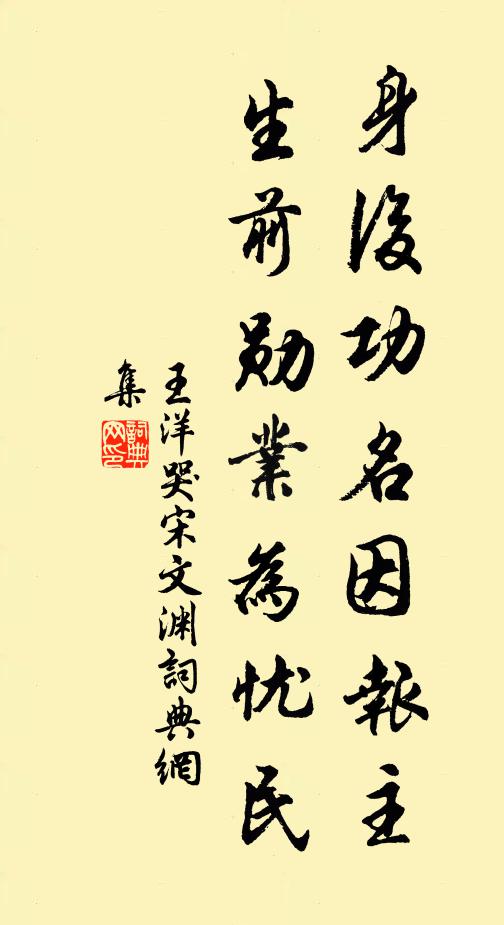 身後功名因報主
生前勋業為忧民
王洋哭宋文渊詞典網
集
詞典网印